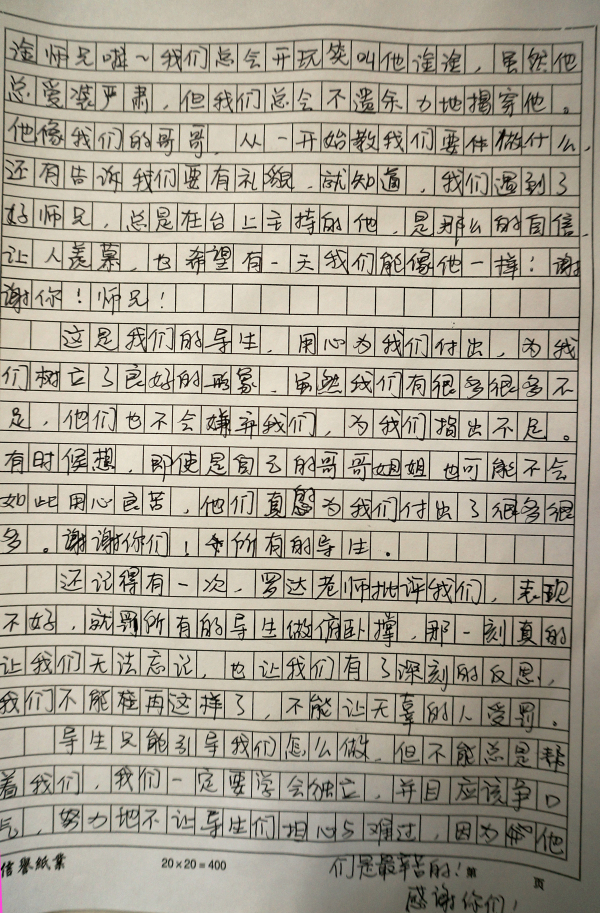 淦师兄啦~我们总会开玩笑叫他淦淦，虽然他
总爱装严肃，但我们总会不遗余力地揭穿他。
他像我们的哥哥，从一开始教我们要体做什么，
还有告诉我们要有礼貌，就知道，我们遇到了
好师兄，总是在台上主持的他，是那么的自信，
让人羡慕，也希望有一天我们能像他一样！谢
谢你！师兄！
这是我们的导生，用心为我们付出，为我
们树立了良好的形象，虽然我们有很多很多不
足，他们也不会嫌弃我们，为我们指出不足。
有时候想，即使是自己的哥哥姐姐也可能不会
如此用心良苦，他们真的为我们付出了很多很
多。谢谢你们！所有的导生。
还记得有一次，罗达老师批评我们，表现
不好，就罚所有的导生做俯卧撑，那一刻真的
让我们无法忘记，也让我们有了深刻的反思，
我们不能在再这样了，不能让无辜的人受罚。
导生只能引导我们怎么做，但不能总是帮
着我们，我们一定要学会独立，并且应该争口
气，努力地不让导生们担心与难过，因为他
们是最辛苦的！
感谢你们！
信誉纸业 20×20=400 第 页